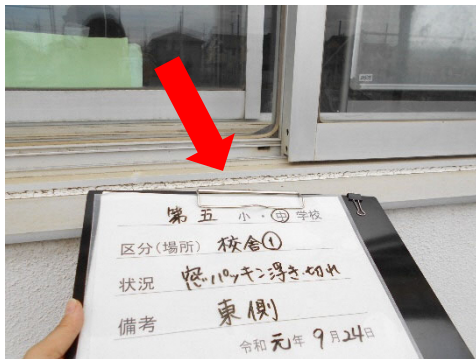 第五 小・中 学校
区分(場所) 校舎①
状況 窓パッキン浮き・切れ
備考 東側
令和元年9月24日